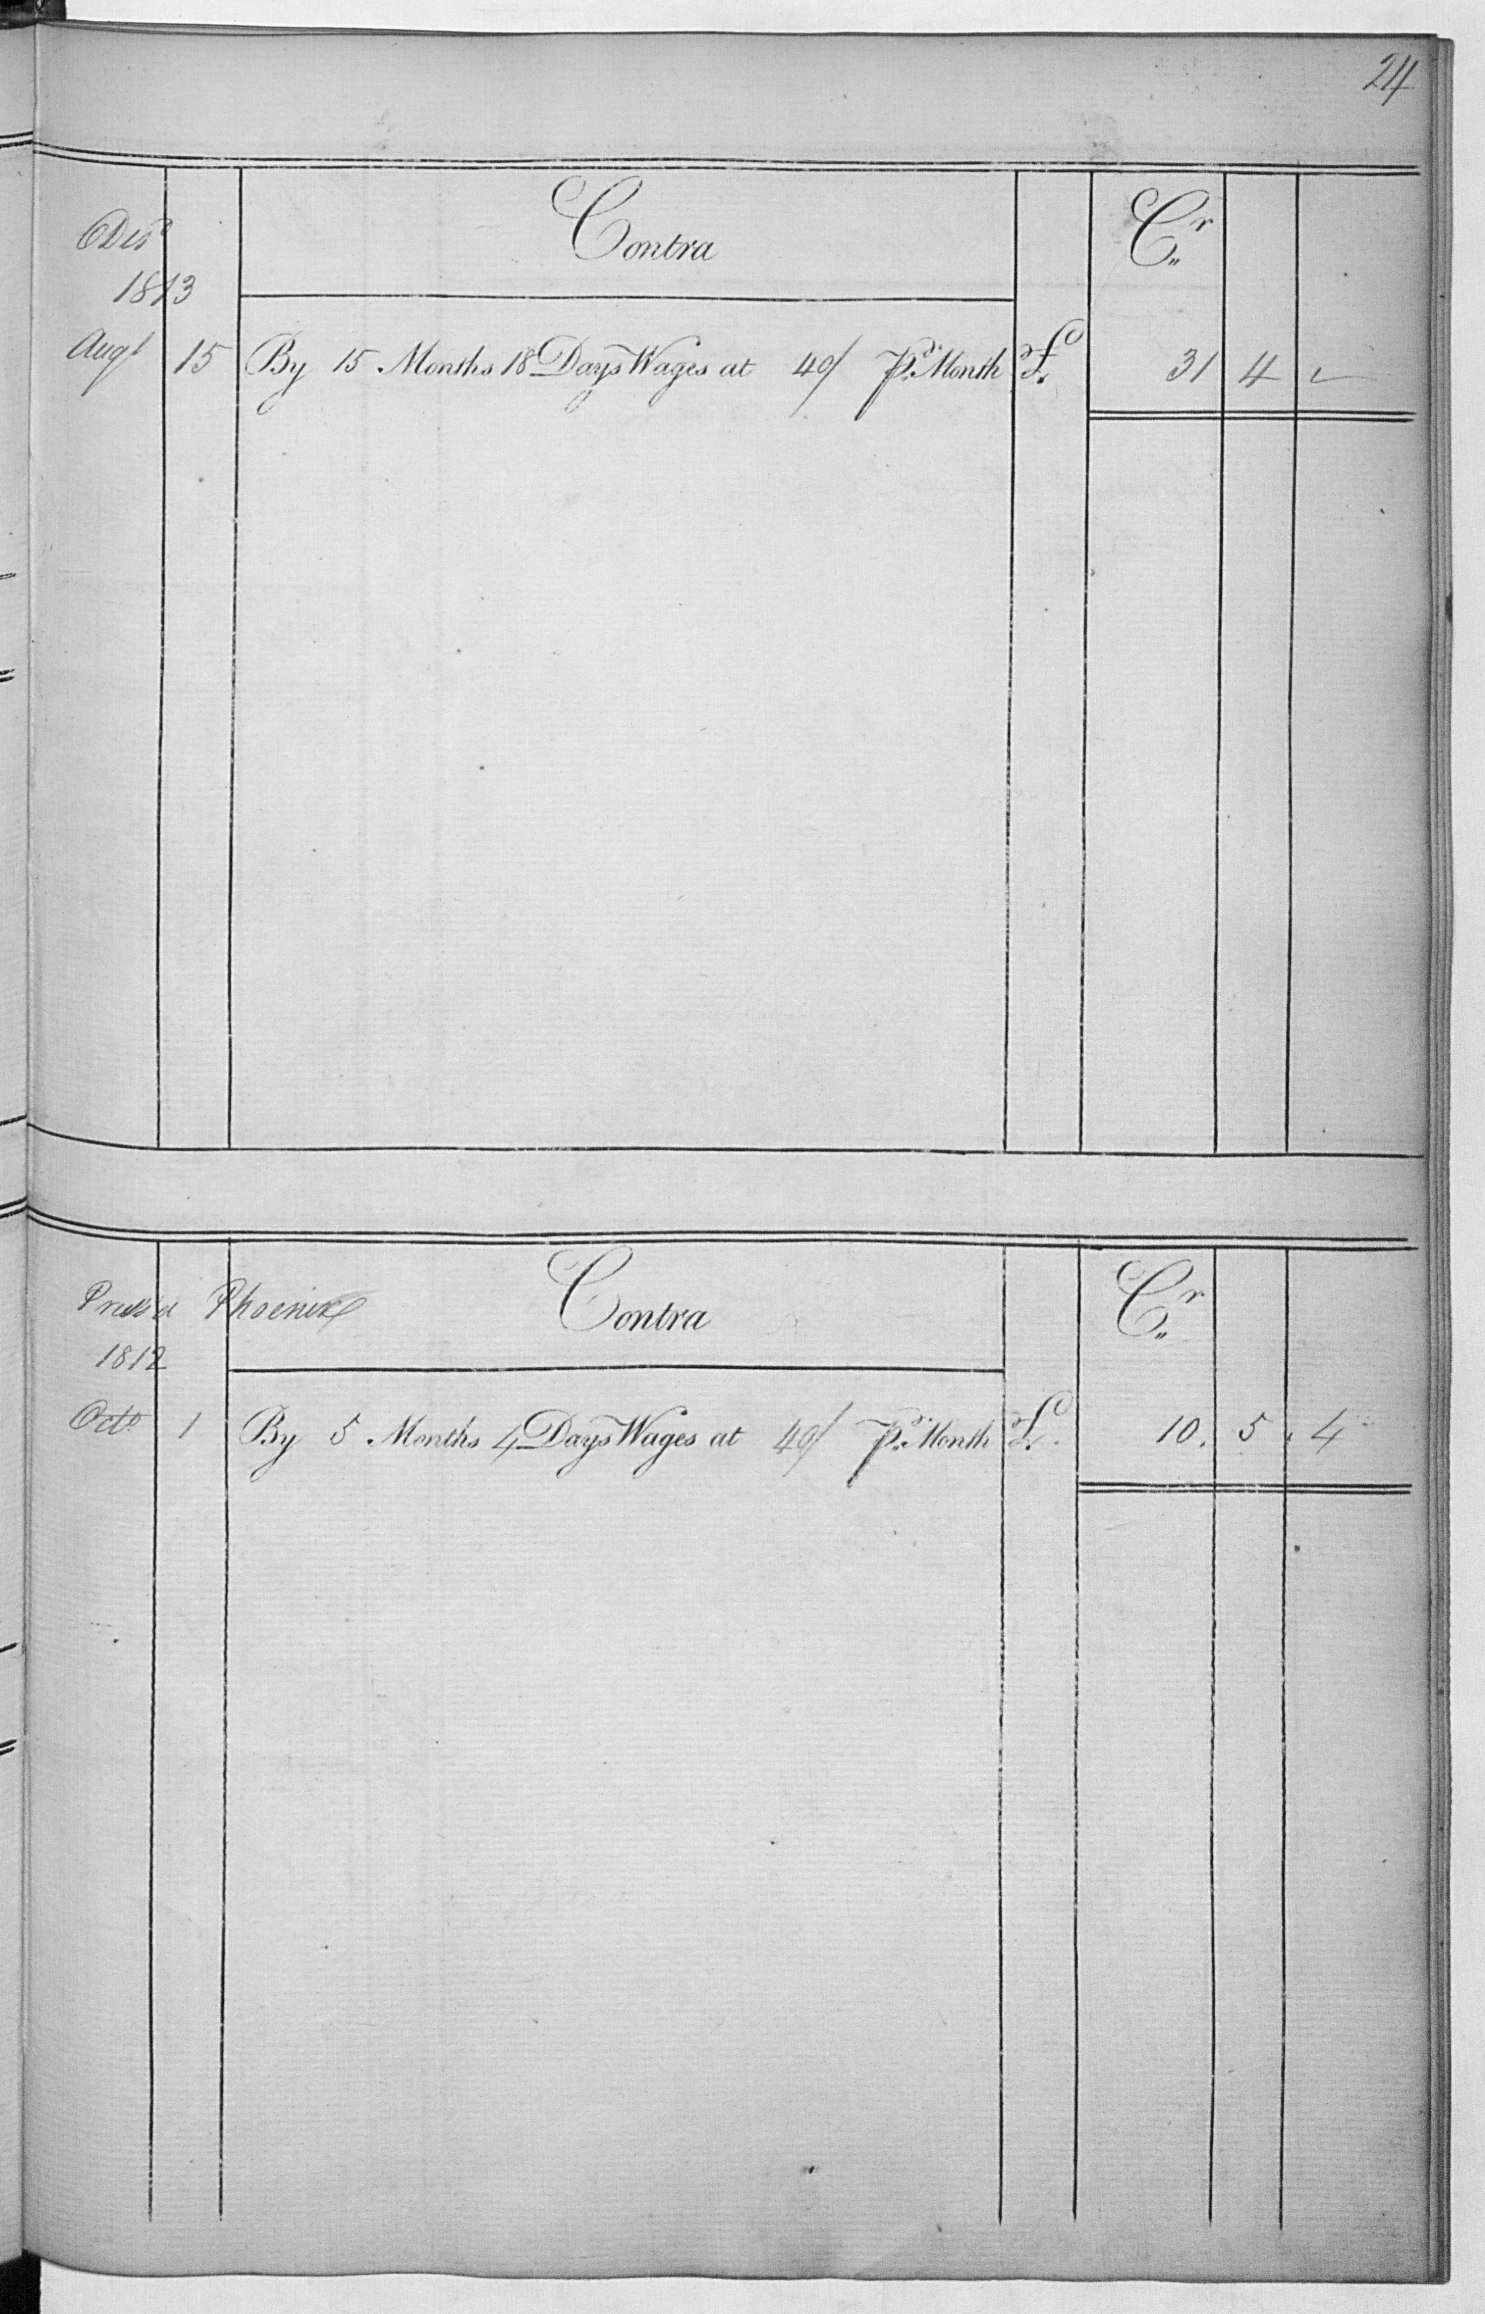 24
Contra Cr
Desd
1813
Augt 15 By 15 Months 18 Days Wages at 40/ Pr. Month £ 31 4 -
Contra Cr
Press'd Phoenix
1812
Octo 1 By 5 Months 4 Days Wages at 40/ Pr. Month £ 10. 5. 4